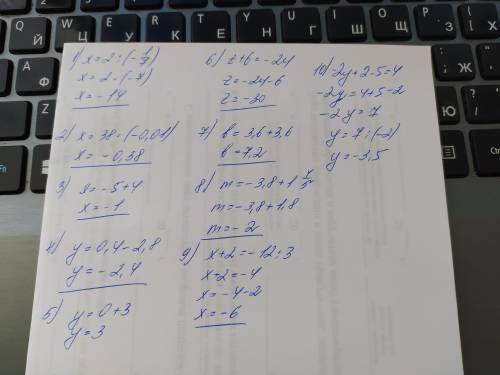 1) x = 2 : (-1/7)
x = 2 · (-7)
x = -14
2) x = 38 · (-0,01)
x = -0,38
3) x = -5+4
x = -1
4) y = 0,4 - 2,8
y = -2,4
5) y = 0+3
y = 3
6) z+6 = -24
z = -24-6
z = -30
7) b = 3,6+3,6
b = 7,2
8) m = -3,8+1 4/5
m = -3,8+1,8
m = -2
9) x+2 = -12:3
x+2 = -4
x = -4-2
x = -6
10) -2y+2-5=4
-2y = 4+5-2
-2y = 7
y = 7:(-2)
y = -3,5